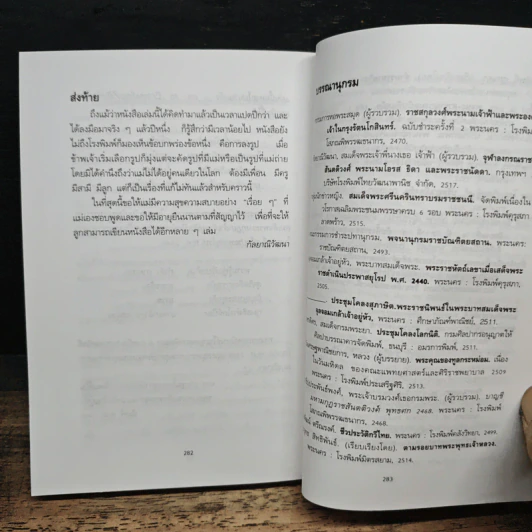 ส่งท้าย
ถึงแม้ว่าหนังสือเล่มนี้ได้คิดทำมาแล้วเป็นเวลาแปดปีกว่า และ
ได้ลงมือมาจริง ๆ แล้วปีหนึ่ง ก็รู้สึกว่ามีเวลาน้อยไป หนังสือยัง
ไม่ถึงโรงพิมพ์ก็มองเห็นข้อบกพร่องข้อหนึ่ง คือการลงรูป เมื่อ
ข้าพเจ้าเริ่มเลือกรูปก็มุ่งแต่จะคัดรูปที่มีแม่หรือเป็นรูปที่แม่ถ่าย
โดยมิได้คำนึงถึงว่าแม่ไม่ได้อยู่คนเดียวในโลก ต้องมีเพื่อน มีครู
มีสามี มีลูก แต่ก็เป็นเรื่องที่แก้ไม่ทันแล้วสำหรับคราวนี้
ในที่สุดนี้ขอให้แม่มีความสุขความสบายอย่าง "เรื่อย ๆ" ที่
แม่เองชอบพูดและขอให้มีอายุยืนนานตามที่สัญญาไว้ เพื่อที่จะให้
ลูกสามารถเขียนหนังสือได้อีกหลาย ๆ เล่ม
กัลยาณิวัฒนา
282
บรรณานุกรม
กรรมการหอพระสมุด (ผู้รวบรวม). ราชสกุลวงศ์พระนามเจ้าฟ้าและพระองค์
เจ้าในกรุงรัตนโกสินทร์. ฉบับชำระครั้งที่ 2 พระนคร : โรงพิมพ์
โสภณพิพรรฒธนากร, 2470.
สมเด็จพระเจ้าพี่นางเธอ เจ้าฟ้า (ผู้รวบรวม). จุฬาลงกรณราช
สันตติวงศ์ พระนามโอรส ธิดา และพระราชนัดดา. กรุงเทพฯ
บริษัทโรงพิมพ์ไทยวัฒนาพานิช จำกัด, 2517.
สมเด็จพระศรีนครินทราบรมราชชนนี. จัดพิมพ์เนื่อง
ในโอกาสเฉลิมพระชนมพรรษาครบ 6 รอบ พระนคร : โรงพิมพ์คุรุสภา
ลาดพร้าว, 2515.
กรรมการชำระปทานุกรม. พจนานุกรมราชบัณฑิตยสถาน. พระนคร:
ราชบัณฑิตยสถาน, 2493.
พระบาทสมเด็จพระ. พระราชหัตถ์เลขาเมื่อเสด็จพระ
ราชดำเนินประพาสยุโรป พ.ศ. 2440. พระนคร : โรงพิมพ์คุรุสภา,
2505.
ประชุมโคลงสุภาษิต.พระราชนิพนธ์ในพระบาทสมเด็จพระ
จุลจอมเกล้าเจ้าอยู่หัว, พระนคร : ศึกษาภัณฑ์พาณิชย์, 2511.
สมเด็จกรมพระยา. ประชุมโคลงโลกนิติ. กรมศิลปากรอนุญาตให้
ศิลปาบรรณาคารจัดพิมพ์, ธนบุรี : อมรการพิมพ์, 2511.
หลวง (ผู้บรรยาย). พระคุณของทูลกระหม่อม. เนื่อง
ในวันมหิดล ของคณะแพทยศาสตร์และศิริราชพยาบาล 2509
พระนคร : โรงพิมพ์ประเสริฐศิริ, 2513.
พระเจ้าบรมวงศ์เธอกรมพระ. (ผู้รวบรวม). นาญชี
มหามกุฎราชสันตติวงศ์ พุทธศก 2468. พระนคร : โรงพิมพ์
โสภณพิพรรฒธนากร, 2468.
ตรีณรงค์. ชีวประวัติกวีไทย. พระนคร : โรงพิมพ์คลังวิทยา, 2499.
สิทธิพันธ์. (เรียบเรียงโดย). ตามรอยบาทพระพุทธเจ้าหลวง.
พระนคร : โรงพิมพ์มิตรสยาม, 2514.
283